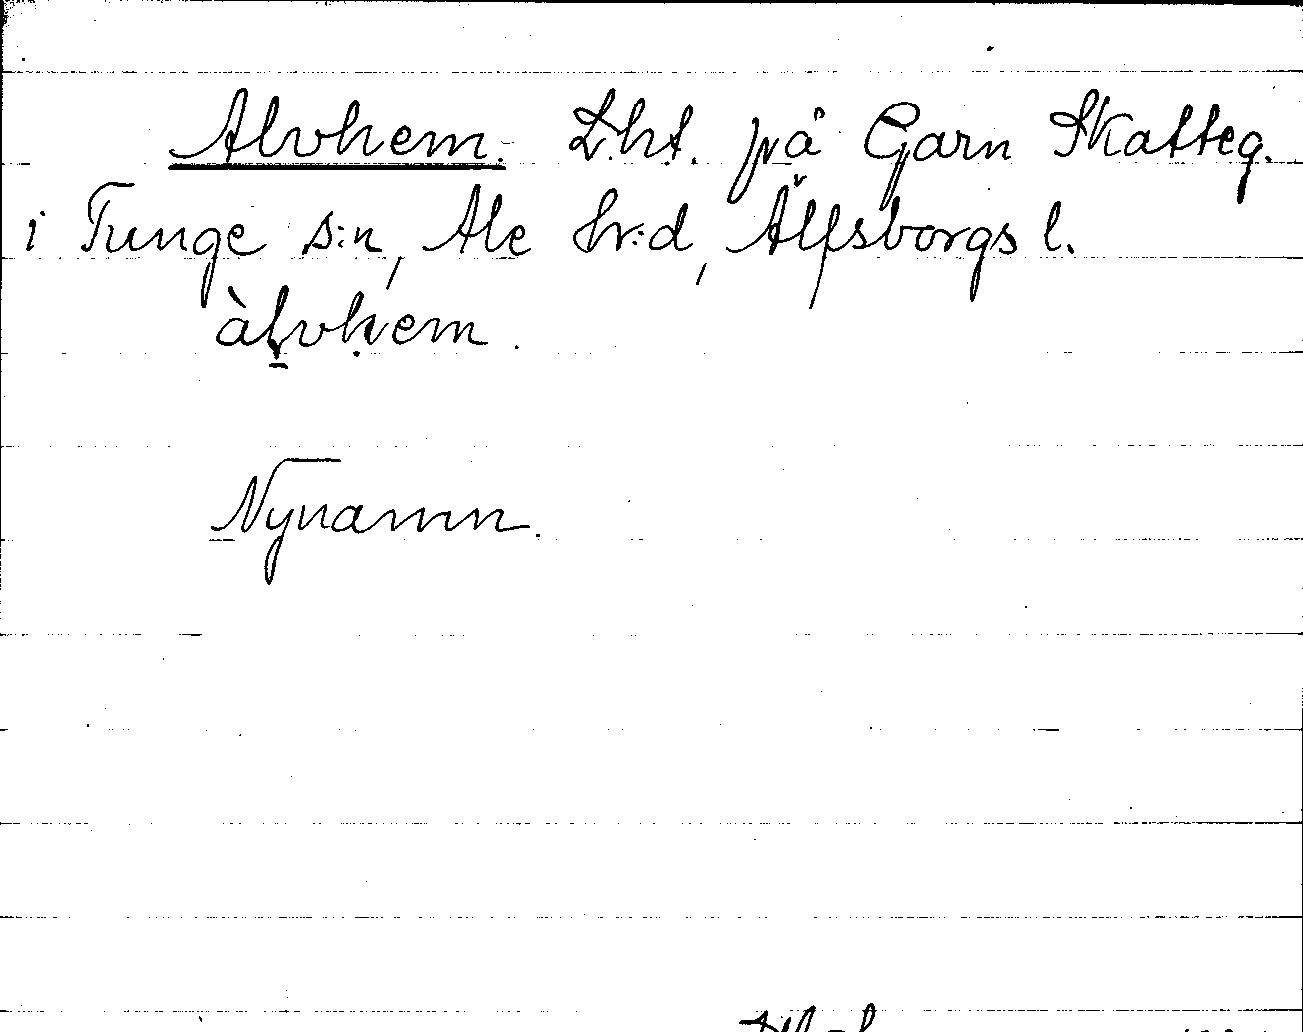 Alvhem. Lht. på Garn Skatteg.
i Tunge s:n, Ale hr:d, Älfsborgs l.
àlvhem.
Nynamn.